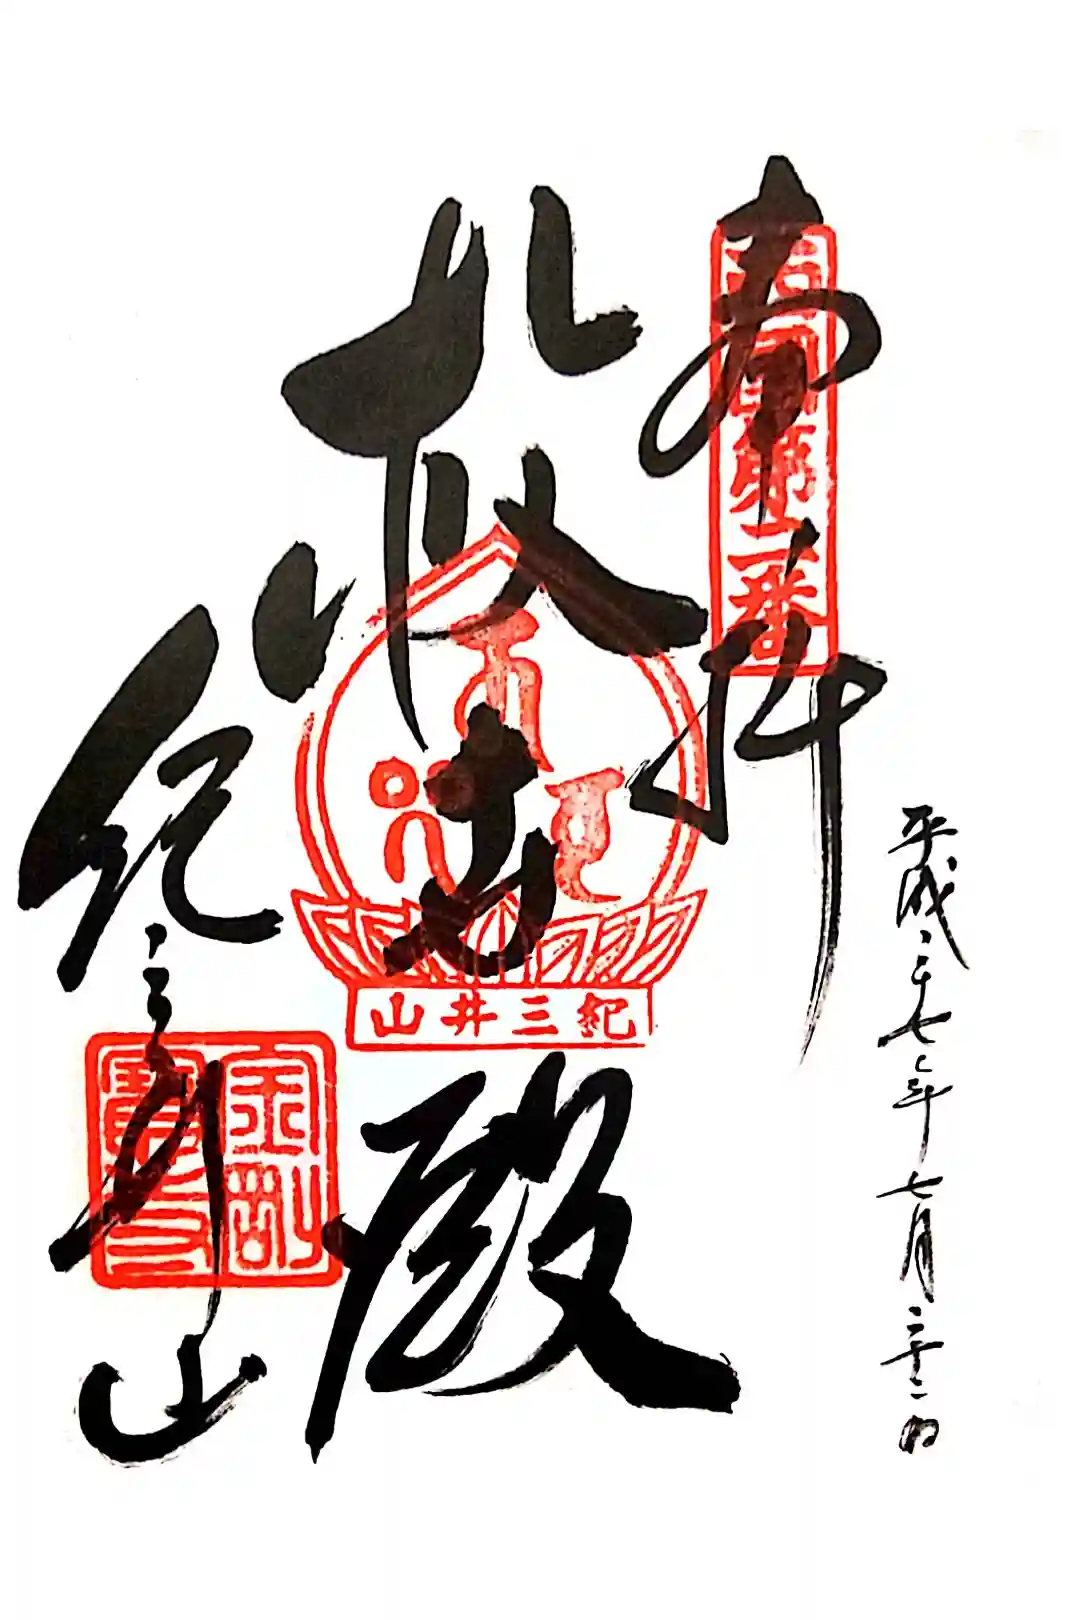 奉拝
西国第二番
平成二十七年七月二十二日
救世殿
山井三紀
紀三井山
金剛
寶寺